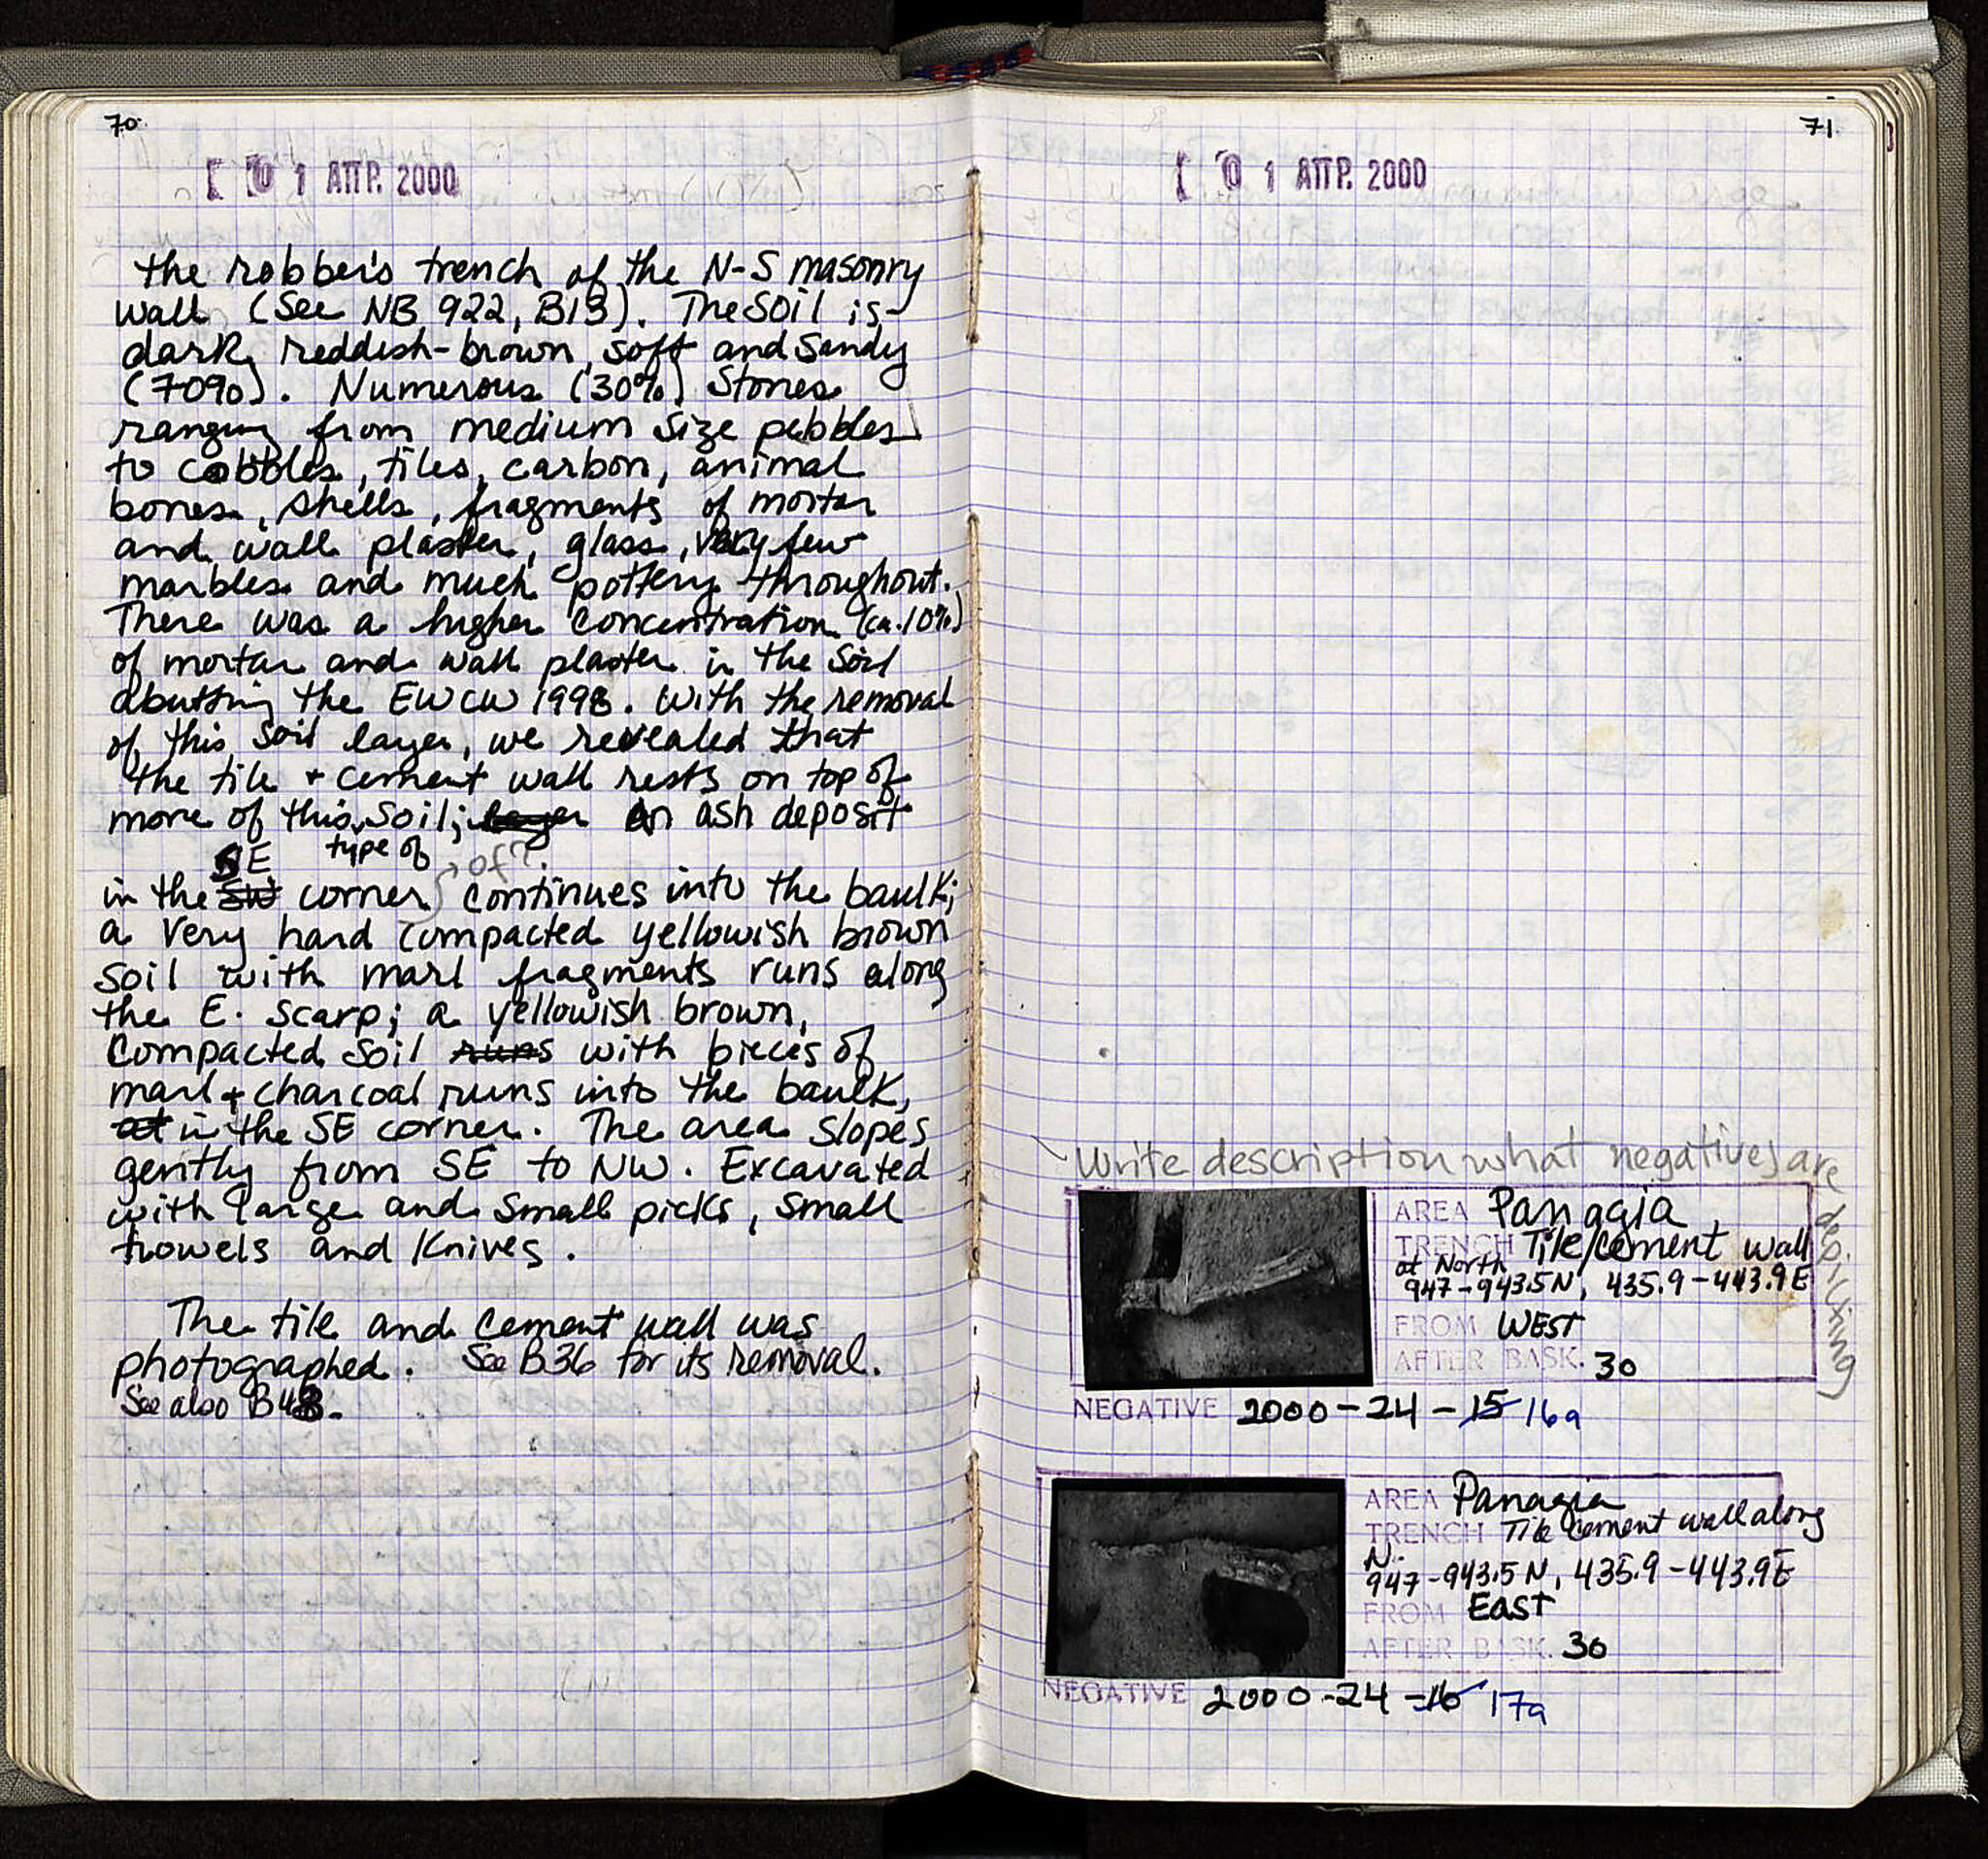 70.
01 ΑΠΡ. 2000
the robber's trench of the N-S masonry
wall (See NB 922, B13). The soil is
dark reddish-brown, soft and sandy
(70%). Numerous (30%) stones
ranging from medium size pebbles
to cobbles, tiles, carbon, animal
bones, shells, fragments of mortar
and wall plaster, glass, very few
marbles and much pottery throughout.
There was a higher concentration (ca. 10%)
of mortar and wall plaster in the soil
abutting the EWCW 1998. With the removal
of this soil layer, we revealed that
the tile + cement wall rests on top of
more of this soil; layer An ash deposit
type of
SE
→ of?
in the SW corner continues into the baulk;
a very hard compacted yellowish brown
soil with marl fragments runs along
the E. scarp; a yellowish brown,
compacted soil runs with pieces of
marl + charcoal runs into the baulk,
at in the SE corner. The area slopes
gently from SE to NW. Excavated
with large and small picks, small
trowels and knives.
The tile and cement wall was
photographed. See B36 for its removal.
See also B48.
71.
01 ΑΠΡ. 2000
Write description what negatives are
describing
AREA Panagia
TRENCH Tile/cement wall
at North
947-943.5N, 435.9-443.9E
FROM WEST
AFTER BASK. 30
NEGATIVE 2000-24-15 16a
AREA Panagia
TRENCH Tile cement wall along
N.
947-943.5 N, 435.9-443.9E
FROM East
AFTER BASK. 30
NEGATIVE 2000-24-16 17a